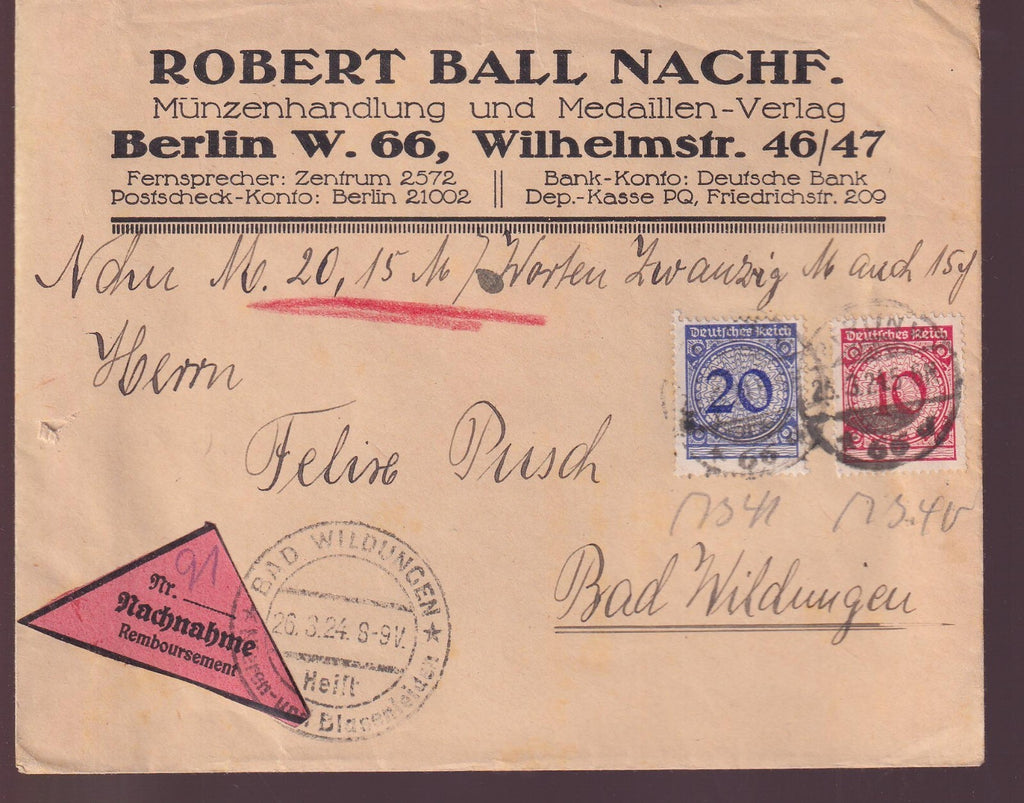 ROBERT BALL NACHF.
Münzenhandlung und Medaillen-Verlag
Berlin W. 66, Wilhelmstr. 46/47
Fernsprecher: Zentrum 2572
Postscheck-Konto: Berlin 21002
Bank-Konto: Deutsche Bank
Dep.-Kasse PQ, Friedrichstr. 209
M. 20,15 M / Worten Zwanzig M auch 15
Herrn
Deutsches Reich
20
Deutsches Reich
10
66
66
Felix Pusch
Bad Wildungen
91
Nr.
Nachnahme
Remboursement
★ BAD WILDUNGEN ★
26.3.24. 8-9V.
Heilt
Nieren- und Blasenleiden